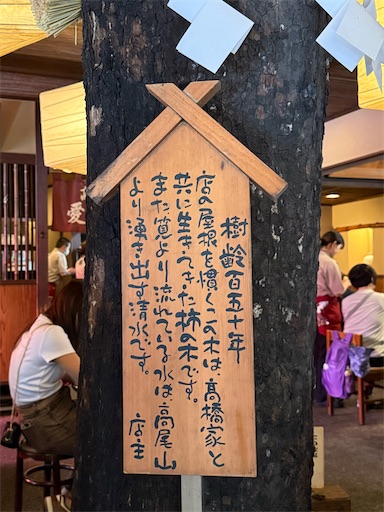 樹齢百五十年
店の屋根を慣くこの木は、髙橋家と
共に生きてきた柿の木です。
また筧より流れている水は、高尾山
より湧き出す清水です。
店主
愛